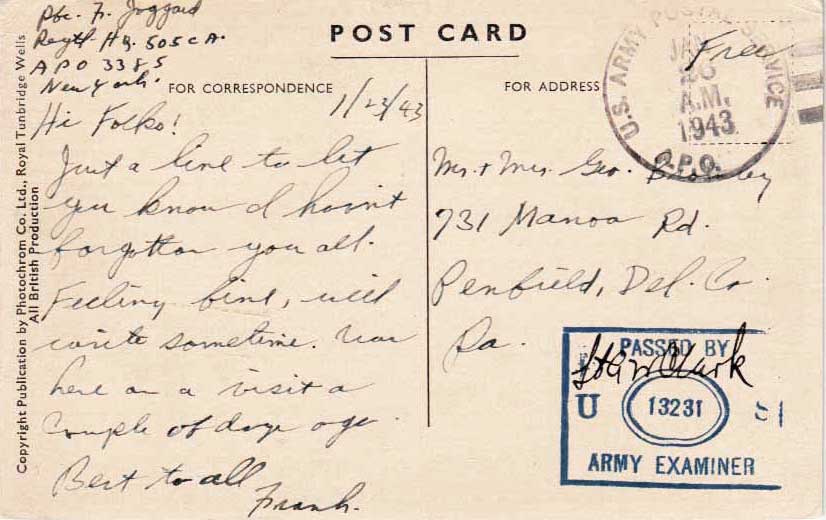 Pvt. F. Joggard
Regtl. Hq. 505 CA.
APO 3385
New York.
POST CARD
Free
U.S. ARMY POSTAL SERVICE
JAN
26
A.M.
1943
A.P.O.
FOR CORRESPONDENCE
FOR ADDRESS
1/23/43
Hi Folks!
Just a line to let
you know I havn't
forgotten you all.
Feeling fine, will
write sometime. Was
here on a visit a
couple of days ago.
Best to all
Frank.
Mr. + Mrs. Geo.
731 Manoa Rd.
Penfield, Del. Co.
Pa.
PASSED BY
U
13231
S
ARMY EXAMINER
Copyright Publication by Photochrom Co. Ltd., Royal Tunbridge Wells
All British Production